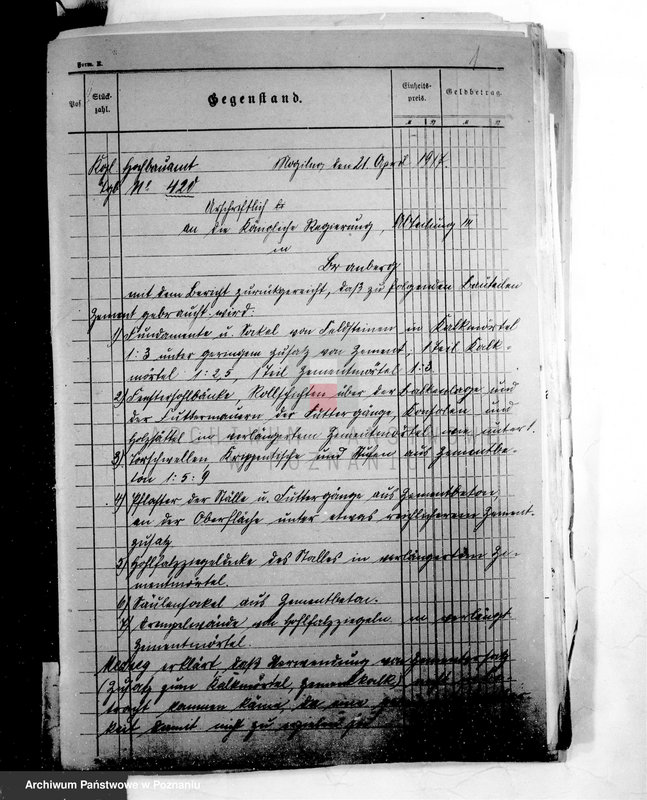 Form. E.
1
Pos.
Stück-
zahl.
Gegenstand.
Einheits-
preis.
Geldbetrag.
M ₰ M ₰
Kgl. Hochbauamt Mogilno, den 21. April 1917.
Tgb. No. 420
Urschriftlich
an die Königliche Regierung, Abteilung III
in
Bromberg
mit dem Bericht zurückgereicht, daß zu folgenden Bauteilen
Zement gebraucht wird:
1) Fundamente u. Sokel von Feldsteinen in Kalkmörtel
1:3 unter geringem Zusatz von Zement, 1 Teil Kalk-
mörtel 1:2,5, 1 Teil Zementmörtel 1:3.
2) Fenstersohlbänke, Rollschichten über der Balkenlage und
der Futtermauern der Futtergänge, Konsolen und
in verlängertem Zementmörtel wie unter 1.
3) Torschwellen, Krippentische und Stufen aus Zementbe-
ton 1:5:9
4) Pflaster der Ställe u. Futtergänge aus Zementbeton,
an der Oberfläche unter etwas reichlicherem Zement-
zusatz
5) Hohlfalzziegeldecke des Stalles in verlängertem Ze-
mentmörtel.
6) Säulensockel aus Zementbeton.
7) Drempelwände von Hohlfalzziegeln in verlängt.
Zementmörtel
erklärt, daß Verwendung von Zementersatz
(Zusatz zum Kalkmörtel, Zementkalk) nicht in Be-
tracht kommen könne, da eine
keit damit nicht zu erzielen sei
ARCHIWUM PAŃSTWOWE
W POZNANIU
Archiwum Państwowe w Poznaniu